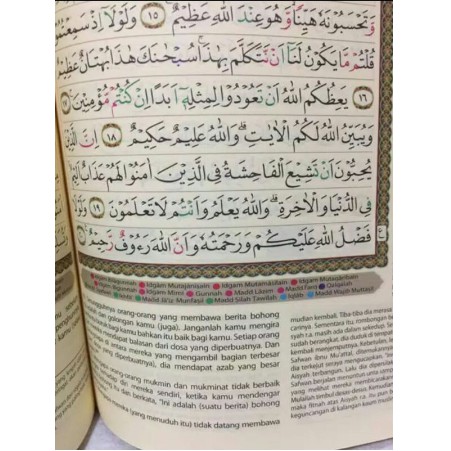 وَّتَحْسَبُوْنَهٗ هَيِّنًا وَّهُوَ عِنْدَ اللّٰهِ عَظِيْمٌ ١٥ وَلَوْلَآ اِذْ سَمِعْتُمُوْ
قُلْتُمْ مَّا يَكُوْنُ لَنَآ اَنْ نَّتَكَلَّمَ بِهٰذَا سُبْحٰنَكَ هٰذَا بُهْتَانٌ عَظِيْمٌ
١٦ يَعِظُكُمُ اللّٰهُ اَنْ تَعُوْدُوْا لِمِثْلِهٖٓ اَبَدًا اِنْ كُنْتُمْ مُّؤْمِنِيْنَ ١٧
وَيُبَيِّنُ اللّٰهُ لَكُمُ الْاٰيٰتِ وَاللّٰهُ عَلِيْمٌ حَكِيْمٌ ١٨ اِنَّ الَّذِيْنَ
يُحِبُّوْنَ اَنْ تَشِيْعَ الْفَاحِشَةُ فِى الَّذِيْنَ اٰمَنُوْا لَهُمْ عَذَابٌ اَلِيْمٌ
فِى الدُّنْيَا وَالْاٰخِرَةِ وَاللّٰهُ يَعْلَمُ وَاَنْتُمْ لَا تَعْلَمُوْنَ ١٩ وَلَوْلَا
فَضْلُ اللّٰهِ عَلَيْكُمْ وَرَحْمَتُهٗ وَاَنَّ اللّٰهَ رَءُوْفٌ رَّحِيْمٌ
Idgam Mutajanisain Idgam Mutamasilain Idgam Mutaqaribain
Idgam Mimi Gunnah Madd Lazim Madd Farq Qalqalah
Madd Ja'iz Munfasil Madd Silah Tawilah Iqlab Madd Wajib Muttasil
orang-orang yang membawa berita bohong
dari golongan kamu (juga). Janganlah kamu mengira
buruk bagi kamu bahkan itu baik bagi kamu. Setiap orang
mendapat balasan dari dosa yang diperbuatnya. Dan
di antara mereka yang mengambil bagian terbesar
diperbuatnya), dia mendapat azab yang besar
orang-orang mukmin dan mukminat tidak berbaik
diri mereka sendiri, ketika kamu mendengar
itu dan berkata, "Ini adalah (suatu berita) bohong
mereka (yang menuduh itu) tidak datang membawa
mudian kembali. Tiba-tiba dia merasa
carinya. Sementara itu, rombongan
yah r.a. masih ada dalam sekedup. Set
sudah berangkat, dia duduk di tempatnya
kembali menjemputnya. Kebetulan, lewat
Safwan ibnu Mu'attal, ditemukan
dia terkejut seraya mengucapkan, "Inna
Aisyah, terbangun. Lalu dia dipersilahkan
Safwan berjalan menuntun untanya
yang melihat mereka membicarakan
Mulailah timbul desas-desus. Kemudian
maka fitnah atas Aisyah r.a. itu pun
keguncangan di kalangan kaum muslim